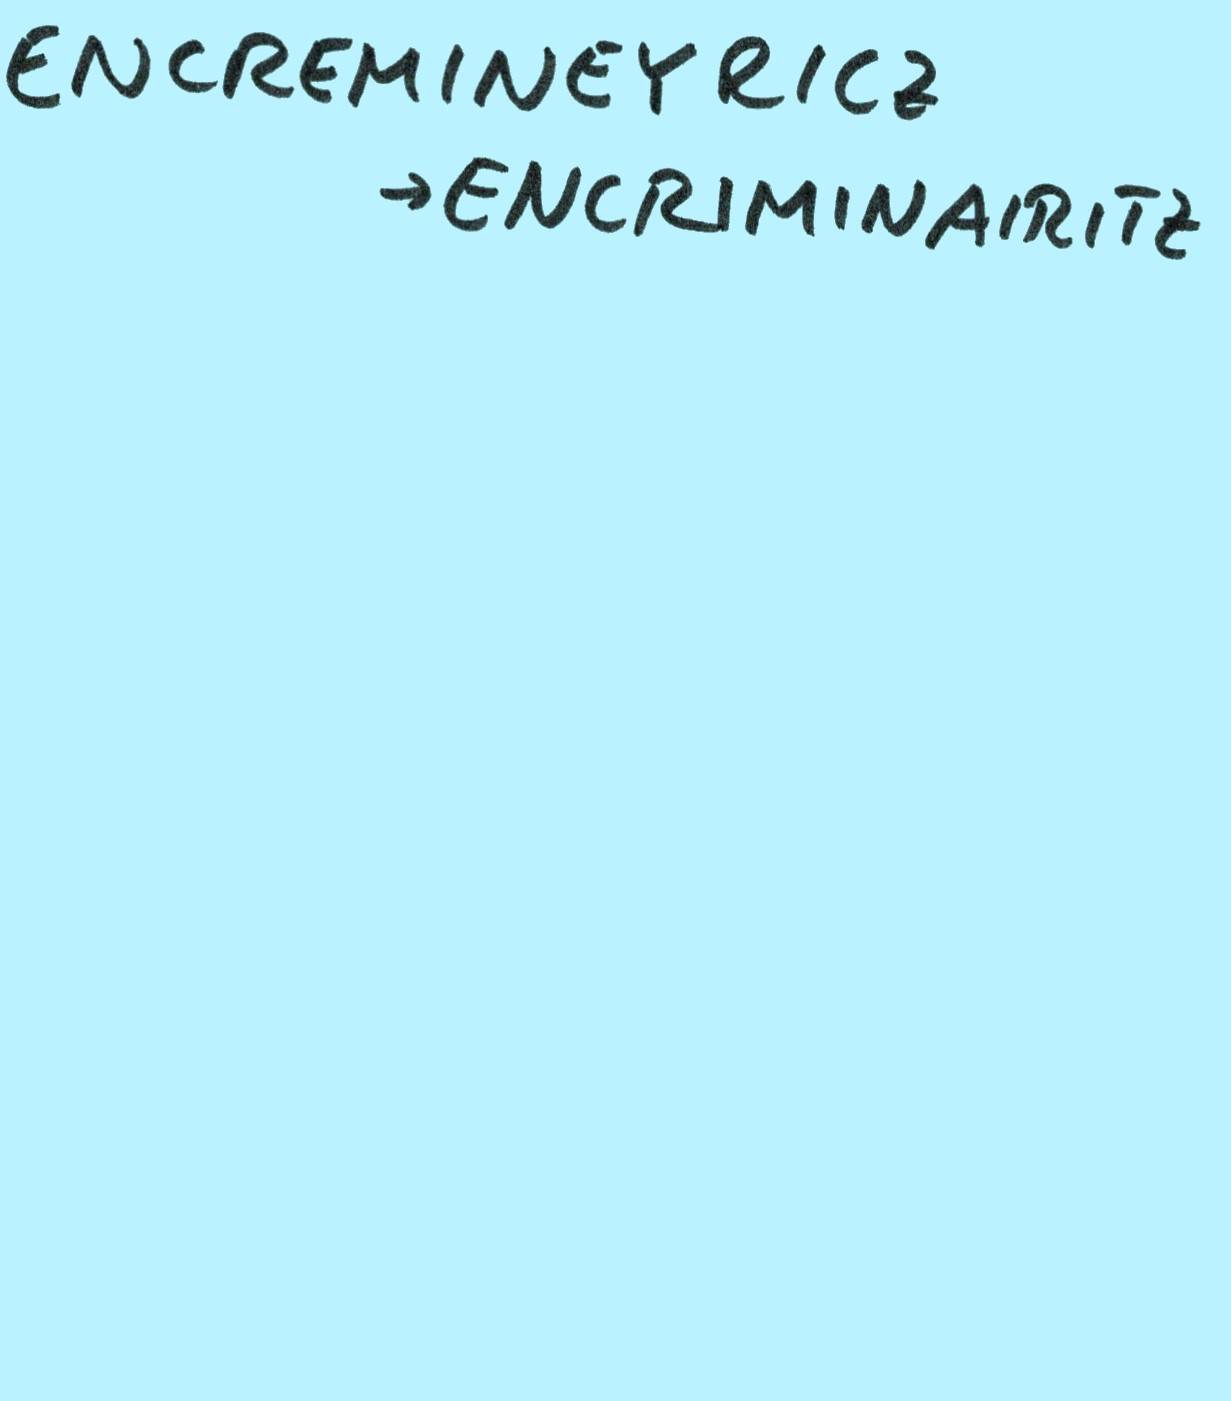 ENCREMINEYRICZ
→ENCRIMINAIRITZ